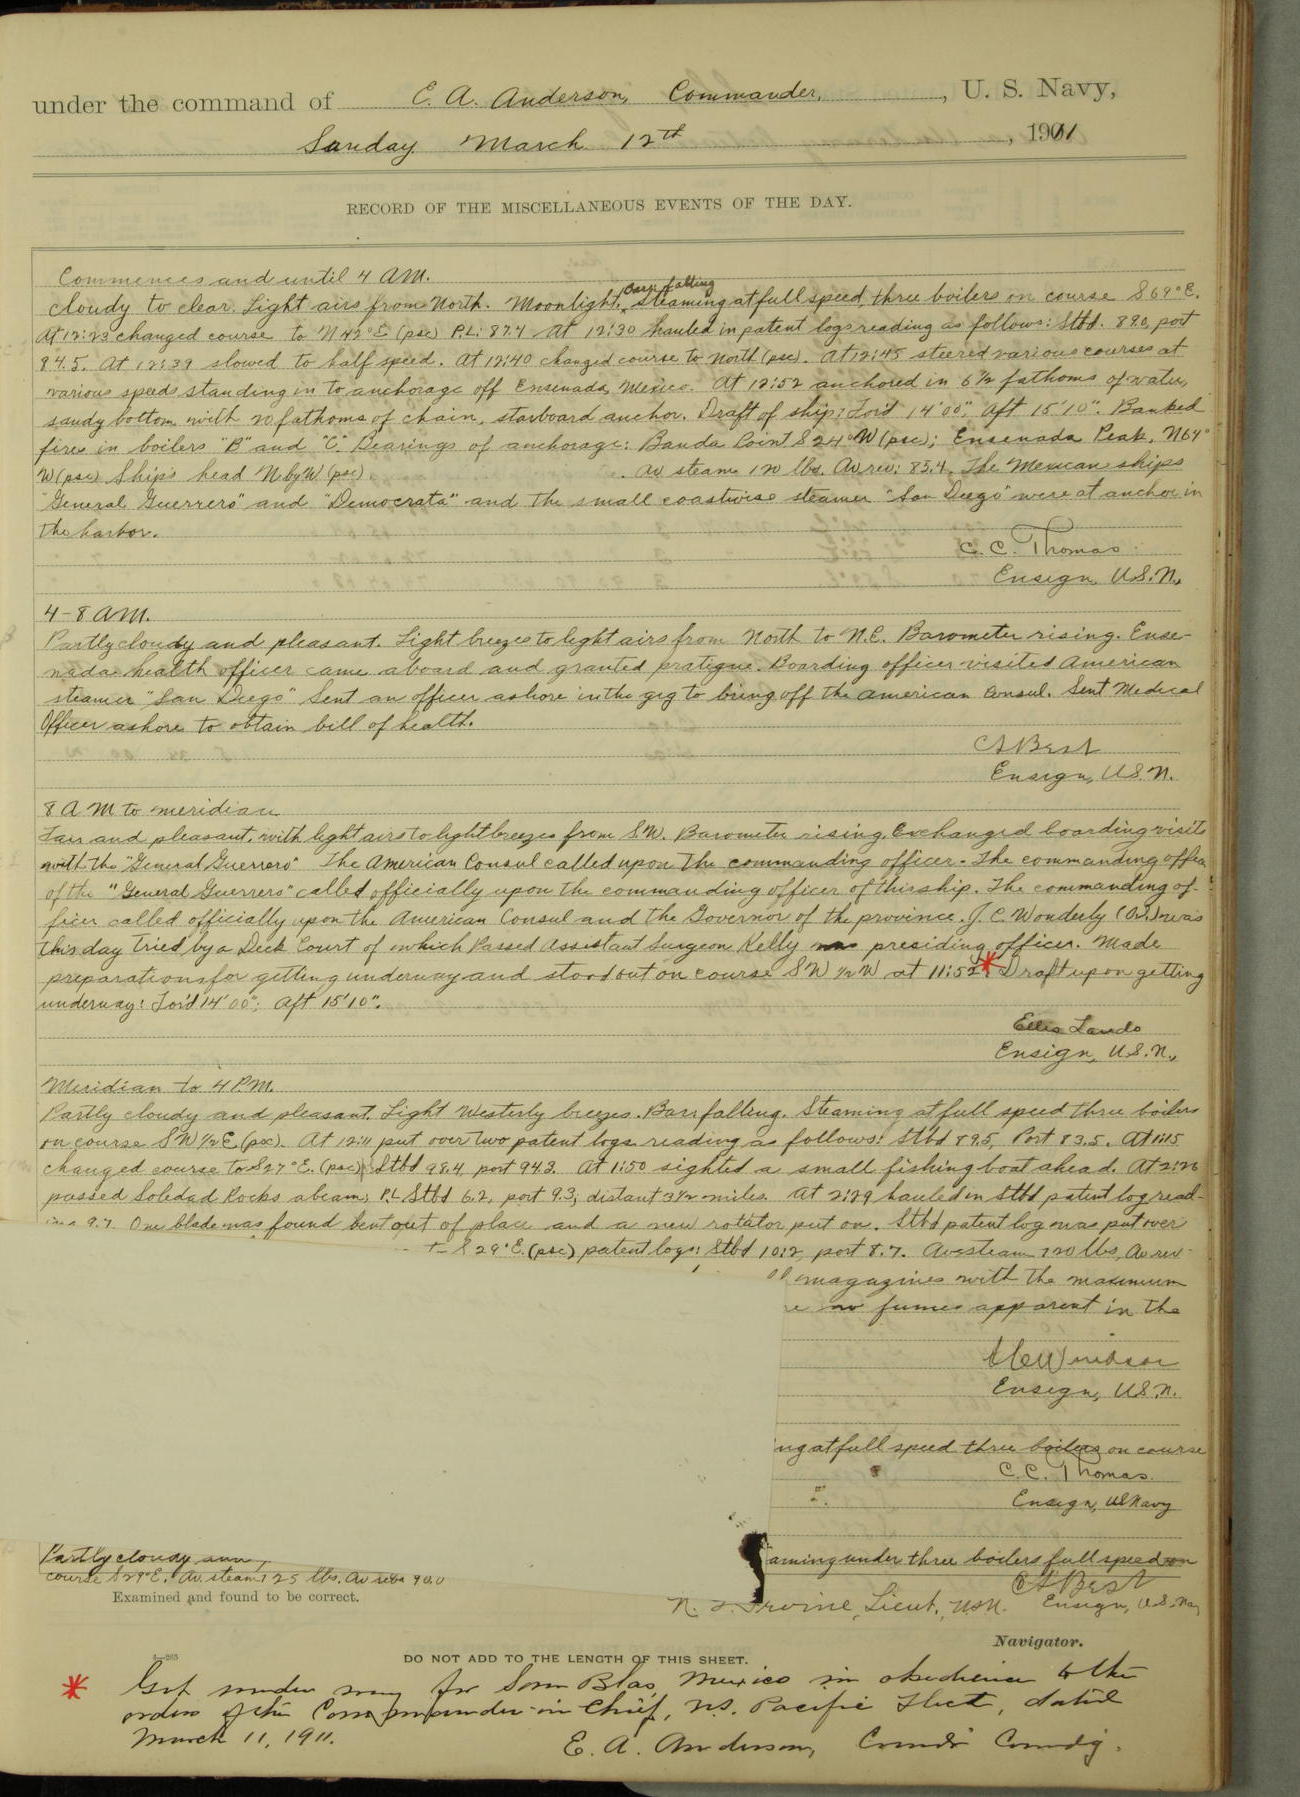 under the command of E. A. Anderson, Commander, , U. S. Navy,
Sunday March 12th , 1911
RECORD OF THE MISCELLANEOUS EVENTS OF THE DAY.
Commences and until 4 AM.
Baro falling
cloudy to clear. Light airs from North. Moonlight, steaming at full speed, three boilers on course S 69° E.
At 12:23 changed course to N 42° E (psc) P.L: 87.4 At 12:30 hauled in patent logs reading as follows: Stbd. 89.0, port
84.5. At 12:39 slowed to half speed. At 12:40 changed course to North (psc). At 12:45 steered various courses at
various speeds standing in to anchorage off Ensenada, Mexico. At 12:52 anchored in 6½ fathoms of water,
sandy bottom with 20 fathoms of chain, starboard anchor. Draft of ship: For'd 14'00"; Aft 15'10". Banked
fires in boilers "B" and "C". Bearings of anchorage: Banda Point S 24° W (psc); Ensenada Peak, N 64°
W (psc) Ship's head N by W (psc). Av steam 120 lbs. Av rev: 85.4. The Mexican ships
"General Guerrero" and "Democrata" and the small coastwise steamer "San Diego" were at anchor in
the harbor.
C. C. Thomas
Ensign, U.S.N.,
4-8 AM.
Partly cloudy and pleasant. Light breezes to light airs from North to N.E. Barometer rising. Ense-
nada health officer came aboard and granted pratique. Boarding officer visited American
steamer "San Diego" Sent an officer ashore in the gig to bring off the American Consul. Sent Medical
Officer ashore to obtain bill of health.
CABest
Ensign, U.S.N.
8 AM to meridian
Fair and pleasant, with light airs to light breezes from SW. Barometer rising. Exchanged boarding visits
with the "General Guerrero" The American Consul called upon the commanding officer. The commanding officer
of the "General Guerrero" called officially upon the commanding officer of this ship. The commanding of-
ficer called officially upon the American Consul and the Governor of the province. J. C. Wonderly was
this day tried by a Deck Court of which Passed Assistant Surgeon Kelly was presiding officer. Made
preparations for getting underway and stood out on course SW ½ W at 11:52.* Draft upon getting
underway: For'd 14'00"; Aft 15'10".
Ellis Lando
Ensign, U.S.N.,
Meridian to 4 P.M.
Partly cloudy and pleasant. Light Westerly breezes. Baro falling. Steaming at full speed three boilers
on course SW ½ E (psc). At 12:11 put over two patent logs reading as follows: Stbd 89.5, Port 83.5. At 1:15
changed course to S 27° E. (psc) Stbd 98.4 port 94.3. At 1:50 sighted a small fishing boat ahead. At 2:26
passed Soledad Rocks abeam; P.L Stbd 6.2, port 9.3; distant 3½ miles. At 2:29 hauled in Stbd patent log read-
ing 9.7. One blade was found bent out of place and a new rotator put on. Stbd patent log was put over
S 29° E. (psc) patent logs: Stbd 10.2, port 8.7. Av steam 120 lbs, Av rev
magazines with the maximum
no fumes apparent in the
Windsor
Ensign, U.S.N.
ing at full speed three boilers on course
C.C. Thomas.
Ensign, US Navy
Partly cloudy
aming under three boilers full speed on
course S 29° E. Av. steam 125 lbs. Av revs 90.0
CABest
Examined and found to be correct.
Irvine, Lieut., USN. Ensign, U.S. Nav
Navigator.
DO NOT ADD TO THE LENGTH OF THIS SHEET.
* Got under way for San Blas, Mexico in obedience to the
orders of the Commander-in-Chief, U.S. Pacific Fleet, dated
March 11, 1911.
E. A. Anderson, Comdr Comdg.